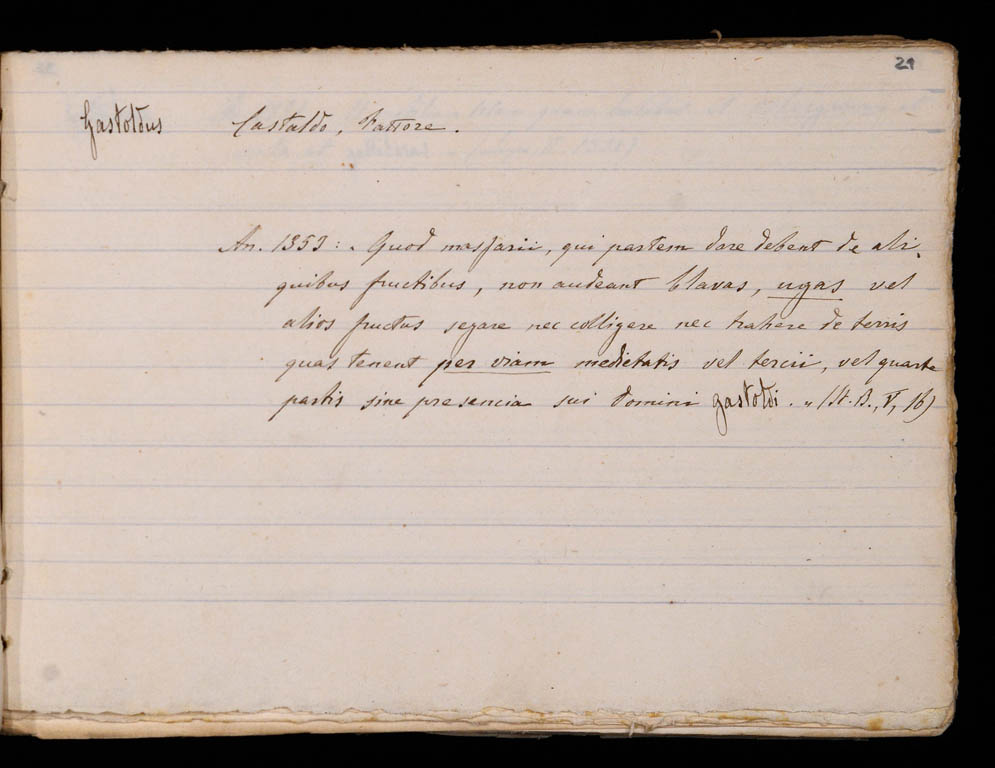 21
Gastoldus Castaldo, Fattore.
An. 1353: „ Quod massarii, qui partem dare debent de ali-
quibus fructibus, non audeant blavas, ugas vel
alios fructus segare nec colligere nec trahere de terris
quas tenent per viam medietatis vel tercii, vel quarte
partis sine presencia sui domini gastoldi. „ (St. B., V, 16)